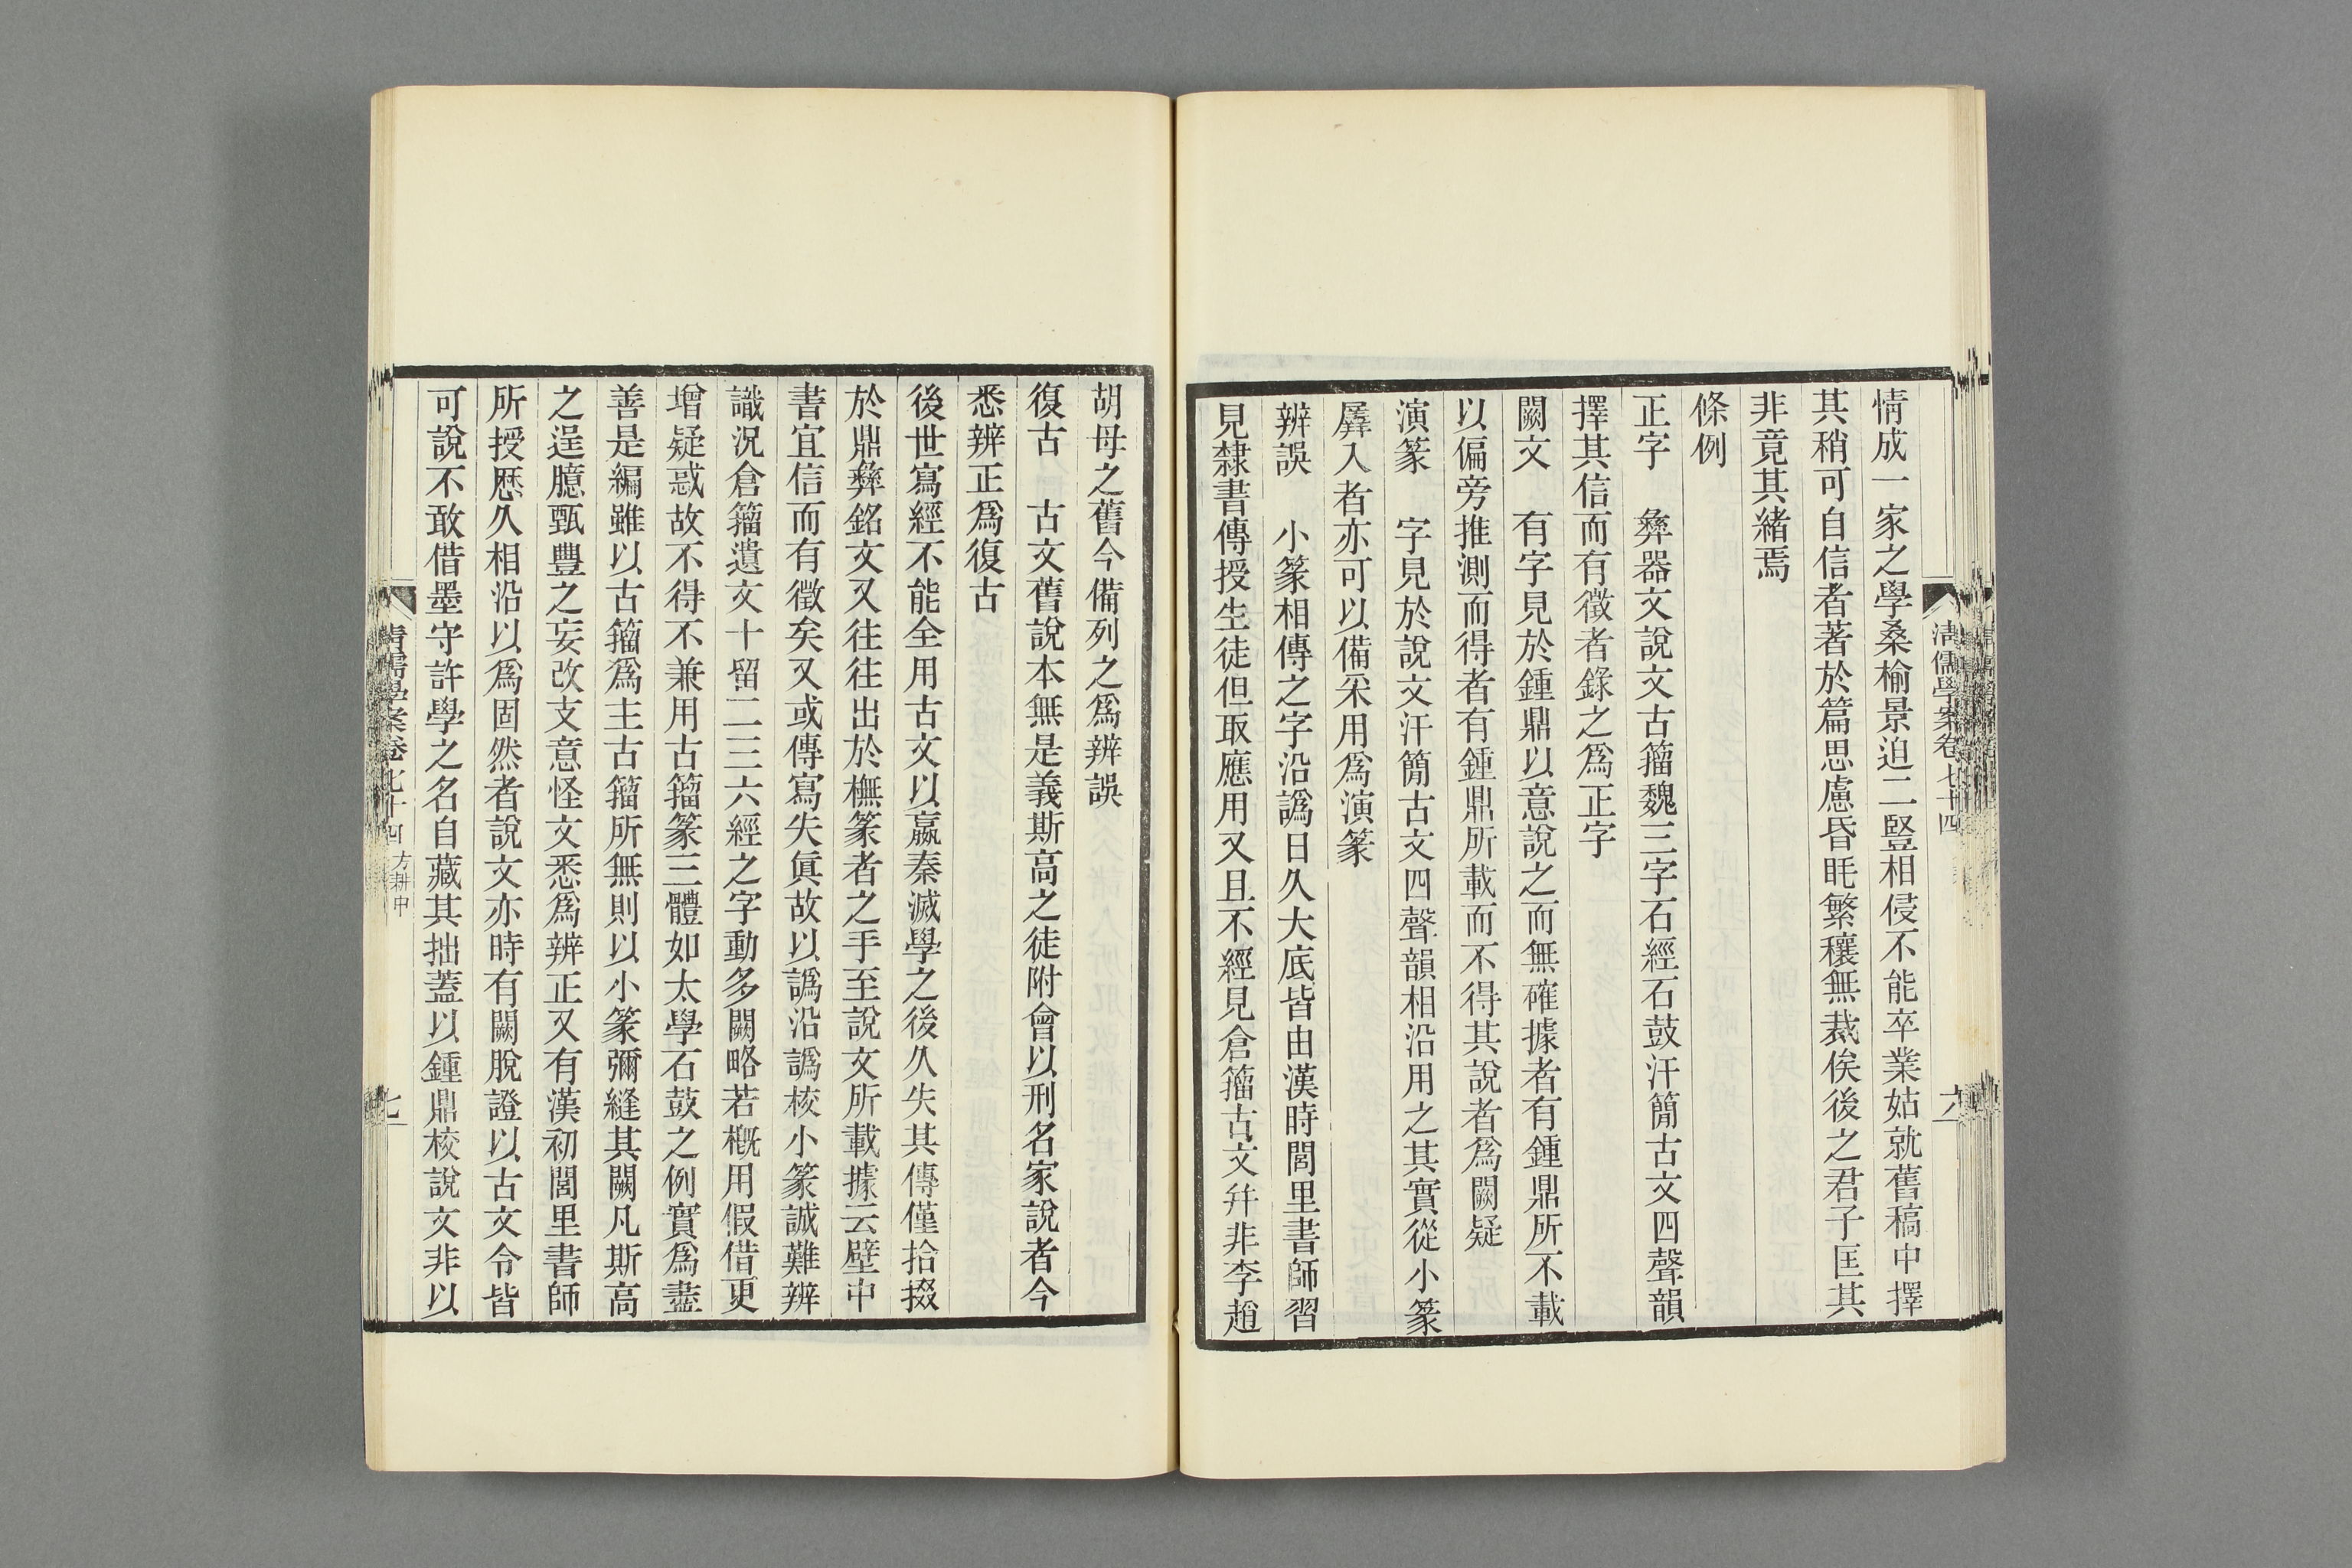 清儒學案卷七十四
六
情成一家之學桑榆景迫二豎相侵不能卒業姑就舊稿中擇
其稍可自信者著於篇思慮昏眊繁穰無裁俟後之君子匡其
非竟其緒焉
條例
正字　彝器文說文古籀魏三字石經石鼓汗簡古文四聲韻
擇其信而有徵者錄之爲正字
闕文　有字見於鍾鼎以意說之而無確據者有鍾鼎所不載
以偏旁推測而得者有鍾鼎所載而不得其說者爲闕疑
演篆　字見於說文汗簡古文四聲韻相沿用之其實從小篆
羼入者亦可以備采用爲演篆
辨誤　小篆相傳之字沿譌日久大底皆由漢時閭里書師習
見隸書傳授生徒但取應用又且不經見倉籀古文幷非李趙
胡母之舊今備列之爲辨誤
復古　古文舊說本無是義斯高之徒附會以刑名家說者今
悉辨正爲復古
後世寫經不能全用古文以嬴秦滅學之後久失其傳僅拾掇
於鼎彝銘文又往往出於橅篆者之手至說文所載據云壁中
書宜信而有徵矣又或傳寫失眞故以譌沿譌校小篆誠難辨
識況倉籀遺文十留二三六經之字動多闕略若槪用假借更
增疑惑故不得不兼用古籀篆三體如太學石鼓之例實爲盡
善是編雖以古籀爲主古籀所無則以小篆彌縫其闕凡斯高
之逞臆甄豐之妄改支意怪文悉爲辨正又有漢初閭里書師
所授歷久相沿以爲固然者說文亦時有闕脫證以古文令皆
可說不敢借墨守許學之名自藏其拙蓋以鍾鼎校說文非以
清儒學案卷七十四　方耕中
七